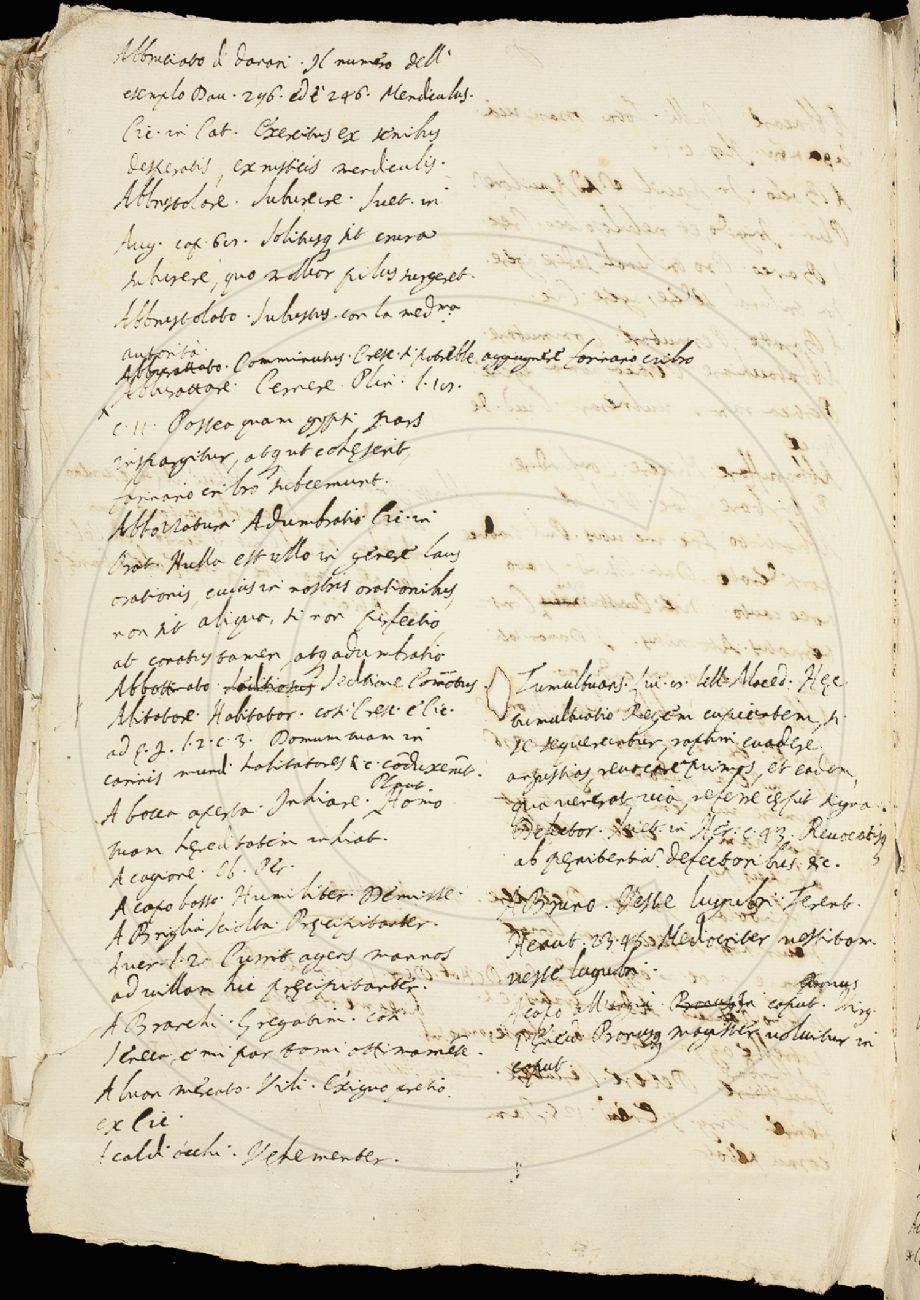 Abbruciato di danari. Il numero dell'
esemplo Dau. 296. ed è 246. Mendiculus.
Cic. in Cat. Exercitus ex senibus
desperatis, ex rusticis mendiculis.
Abbrustolare. Suburere. Suet. in
Aug. cap. 68. Solitusq sit crura
suburere, quo mollior pilus surgeret.
Abbrustolato. Subustus. con la medma
autorità.
Comminutus. Cresc. si potrebbe aggiugnere farinario cribro
Abburattare. Cernere. Plin. l. 18.
c. 11. Postea quam gypsi pars
inspargitur, atq ut cohęserit,
farinario cribro subcernunt.
Abbozzatura. Adumbratio. Cic. in
Orat. Nulla est ullo in genere laus
orationis, cuius in nostris orationibus
non sit aliqua, si non perfectio,
at conatus tamen, atq adumbratio
Abbottinato. Seditione Comotus.
Abitatore. Habitator. così Cresc. e Cic.
ad q. f. l. 2. c. 3. Domum tuam in
carinis mundi habitatores &c. coduxerut.
A bocca aperta. Inhiare. Plaut. Homo
tuam hęreditatem inhiat.
A cagione. Ob. Per.
A capo basso. Humiliter. Demisse.
A Briglia sciolta. Pręcipitanter.
Lucr. l. 2. Currit agens mannos
ad villam hic pręcipitanter.
A Branchi. Gregatim. così
Seneca, e mi par torni ottimamete.
A buon mercato. Vili. Exiguo pretio
ex Cic.
scaldi occhi. Vehementer.
Tumultuans. Liu. Maced. Hęc
tumultuatio Regem cupientem, si
se sequerentur, raptim euadere
angustias, reuocare primos, et eadem,
qua uenerat uia, referre cępit signa.
Defector. Suet. in Ner. c. 43. Reuocatisq
ab pęnitentia defectoribus. &c.
A Bruno. Veste lugubri. Terent.
Heaut. Mediocriter uestitam
ueste lugubri.
Pronus
A capo in caput. Virg.
Pronusq magister uoluitur in
caput.